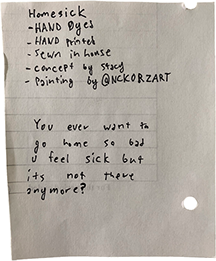 Homesick
-HAND Dyed
-HAND Printed
-Sewn in house
-concept by Stacy
-Painting by @NCKORZART
You ever want to
go home so bad
u feel sick but
its not there
anymore?